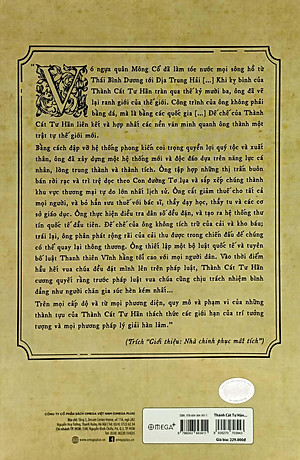 Vó ngựa quân Mông Cổ đã làm tóc nước mọi sông hồ từ
Thái Bình Dương tới Địa Trung Hải [...] Khi kỵ binh của
Thành Cát Tư Hãn tràn qua thế kỷ mười ba, ông đã vẽ
lại ranh giới của thế giới. Công trình của ông không phải
bằng đá, mà là bằng các quốc gia [...] Đế chế của Thành
Cát Tư Hãn liên kết và hợp nhất các nền văn minh quanh ông thành một
trật tự thế giới mới.
Bằng cách đập vỡ hệ thống phong kiến coi trọng quyền lợi quý tộc và xuất
thân, ông đã xây dựng một hệ thống mới và độc đáo dựa trên năng lực cá
nhân, lòng trung thành và thành tích. Ông tập hợp những thị trấn buôn
bán rời rạc và trì trệ dọc theo Con đường Tơ lụa và sắp xếp chúng thành
khu vực thương mại tự do lớn nhất lịch sử. Ông cắt giảm thuế cho tất cả
mọi người, và bỏ hẳn sưu thuế với bác sĩ, thầy dạy học, thầy tu và các cơ
sở giáo dục. Ông thực hiện điều tra dân số đều đặn, và tạo ra hệ thống thư
tín quốc tế đầu tiên. Đế chế của ông không tích trữ của cải và kho báu;
trái lại, ông phân phát rộng rãi của cải thu được trong chiến đấu để chúng
có thể quay lại thông thương. Ông thiết lập một bộ luật quốc tế và tuyên
bố luật Thanh thiên Vĩnh hằng tối cao với mọi người dân. Vào thời điểm
hầu hết vua chúa đều đặt mình lên trên pháp luật, Thành Cát Tư Hãn
cương quyết rằng trước pháp luật vua chúa cũng chịu trách nhiệm bình
đẳng như người chăn gia súc hèn kém nhất...
Trên mọi cấp độ và từ mọi phương diện, quy mô và phạm vi của những
thành tựu của Thành Cát Tư Hãn thách thức các giới hạn của trí tưởng
tượng và mọi phương pháp lý giải hàn lâm."
(Trích "Giới thiệu: Nhà chinh phục mất tích")
CÔNG TY CỔ PHẦN SÁCH OMEGA VIỆT NAM (OMEGA PLUS)
OMEGA+
Thành Cát Tư Hãn...
Giá bìa: 229.000đ